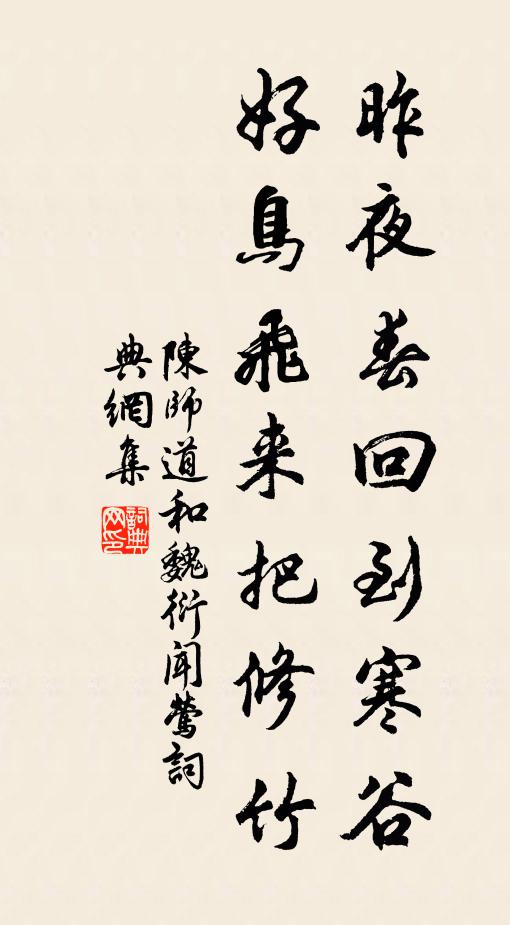 昨夜春回到寒谷
好鳥飛来把修竹
陳師道和魏衍聞鶯詞
典網集
詞典网印